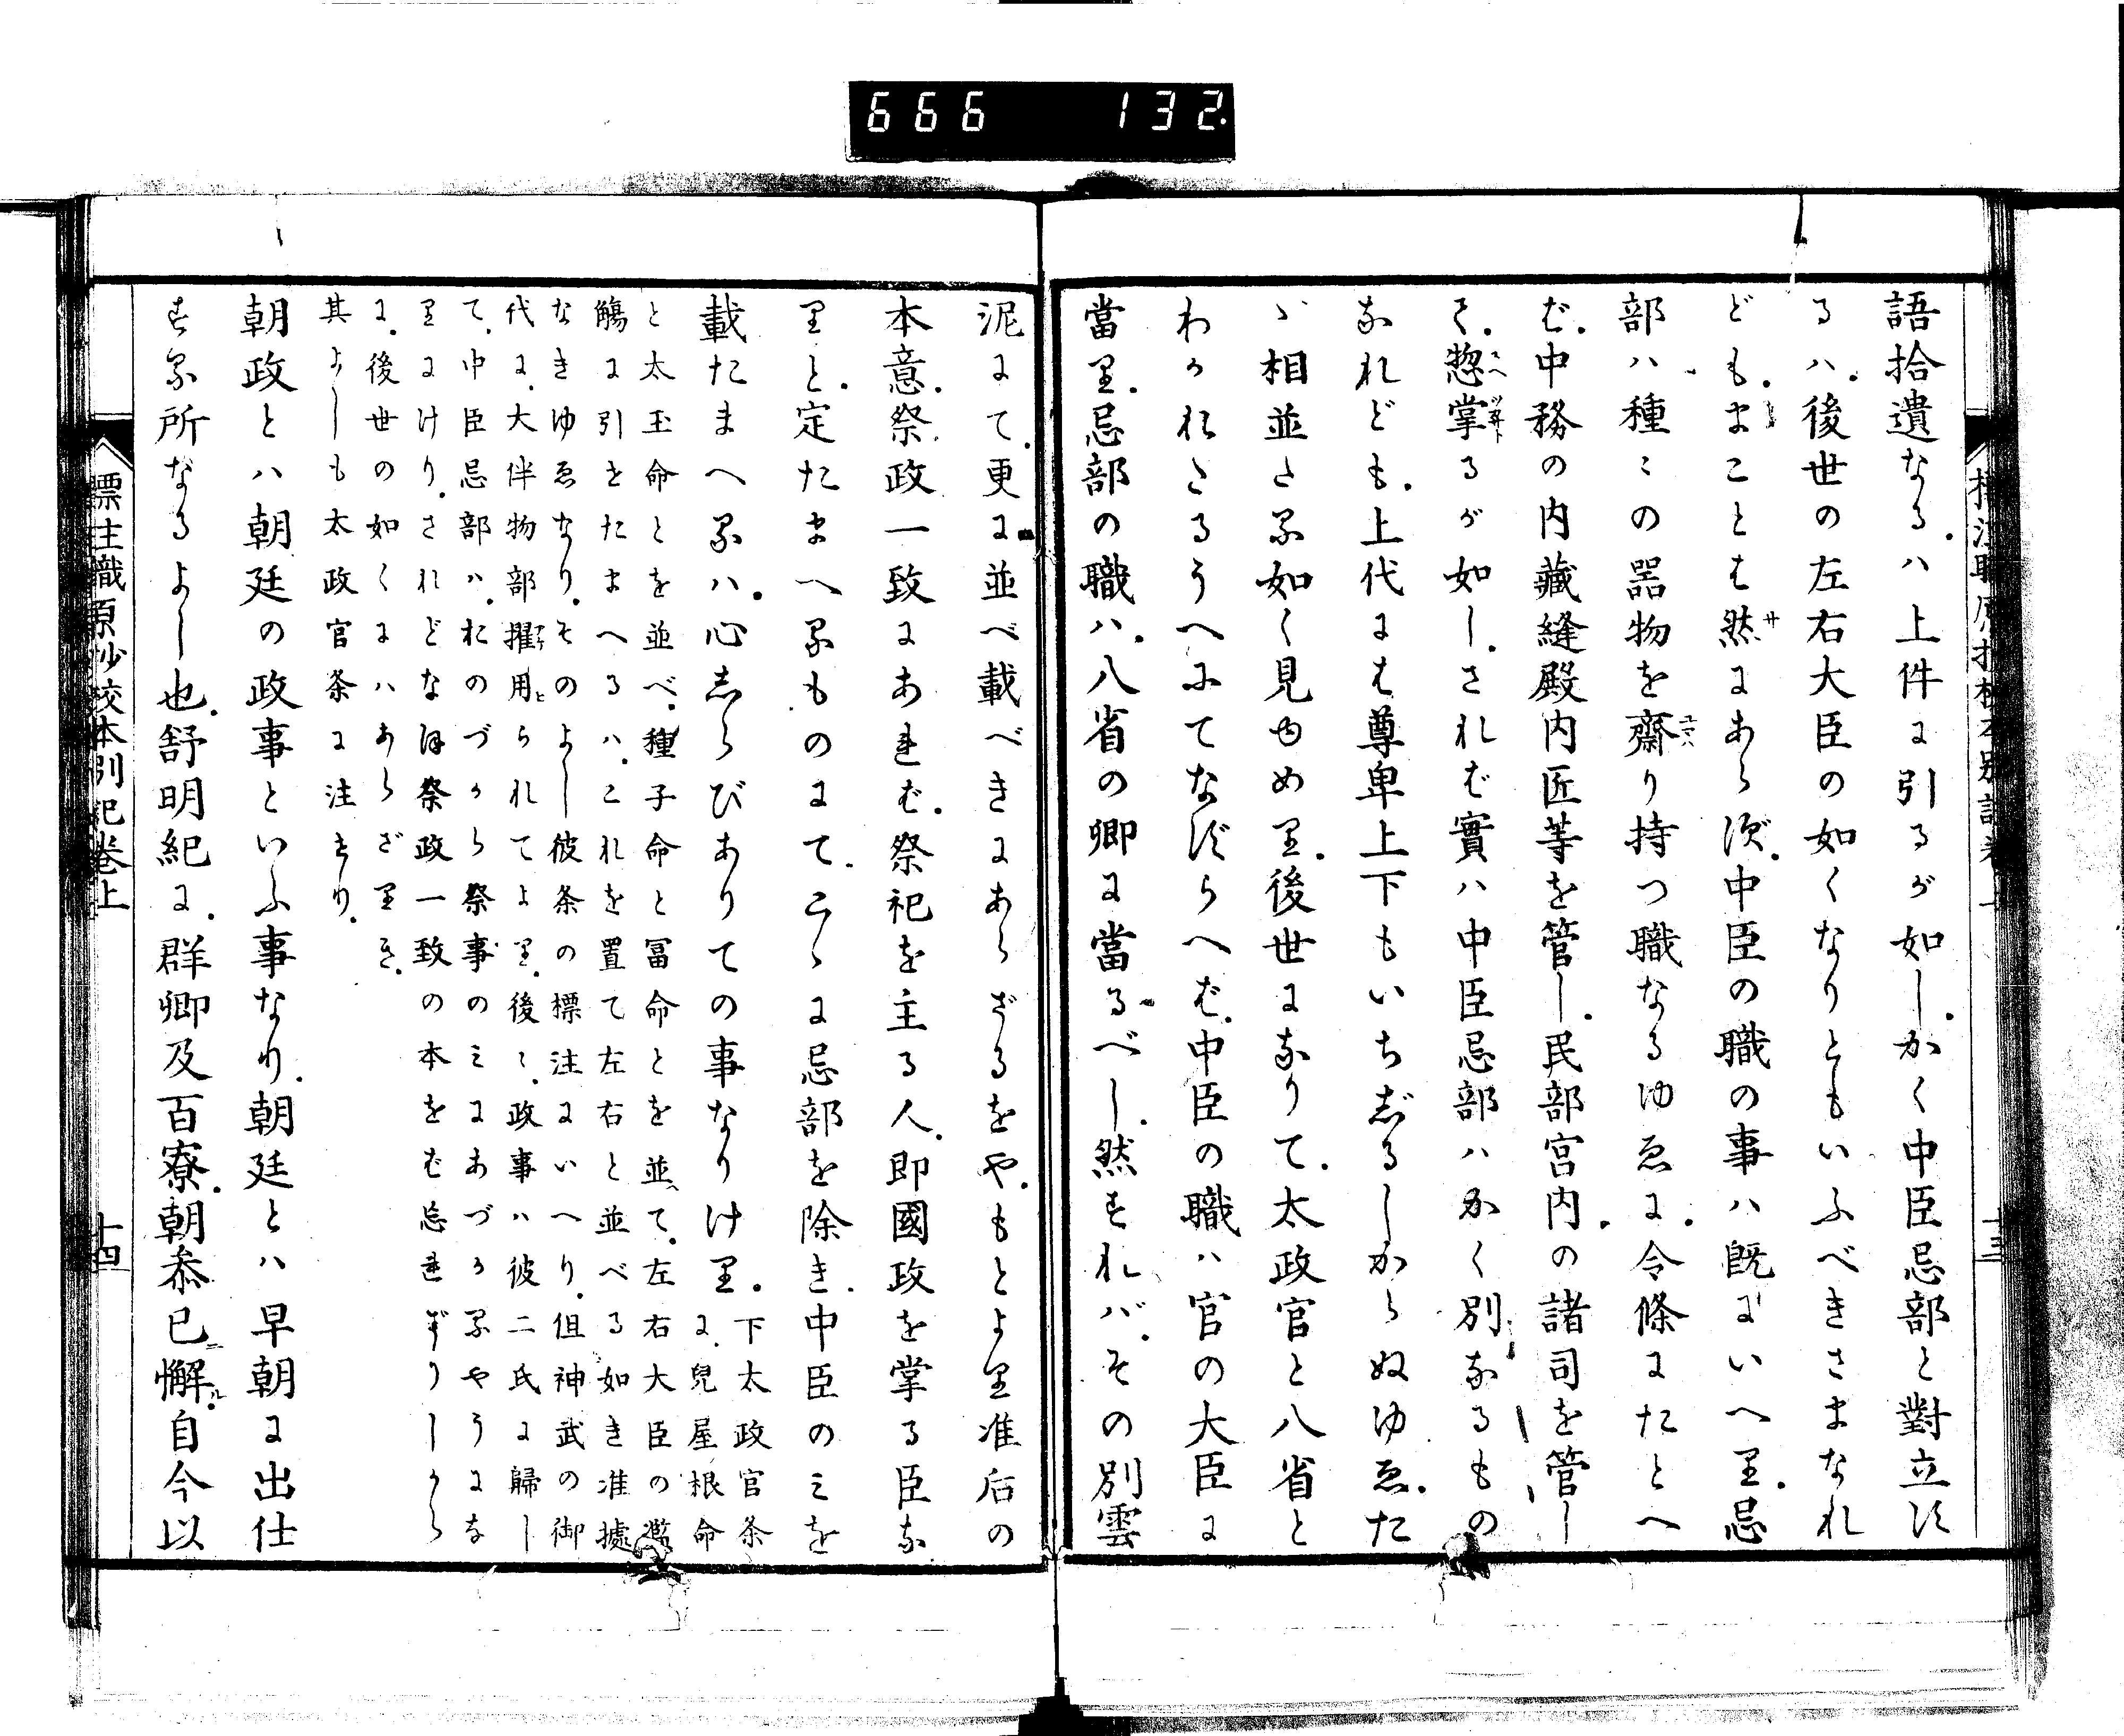 666 132.
語拾遺なる。ハ上件に引るが如し。かく中臣忌部と對立す
るハ。後世の左右大臣の如くなりともいふべきさまなれ
ども。まことは然にあらず。中臣の職の事ハ既にいへり。忌
部ハ種々の器物を齋り持つ職なるゆゑに。令條にたとへ
ば。中務の内藏縫殿内匠等を管し。民部宮内。の諸司を管し
て。惣掌るが如し。されば實ハ中臣忌部ハかく別なるもの
なれども。上代には尊卑上下もいちじるしからぬゆゑ。た
ゞ相並たる如く見ゆめり。後世になりて。太政官と八省と
わかれたるうへにてなずらへば。中臣の職ハ官の大臣に
當り。忌部の職ハ。八省の卿に當るべし。然すれバ。その別雲
泥にて。更に並べ載べきにあらざるをや。もとより准后の
本意。祭政一致にあれば。祭祀を主る人。即國政を掌る臣な
りと。定たまへるものにて。こゝに忌部を除き。中臣のミを
載たまへるハ。心しらびありての事なりけり。下太政官条
に。兒屋根命
と太玉命とを並べ。種子命と冨命とを並べて。左右大臣の濫
觴に引きたまへるハ。これを置て左右と並べる如き准據
なきゆゑなり。そのよし彼条の標注にいへり。但神武の御
代に。大伴物部擢用られてより。後々。政事ハ彼二氏に歸し
て。中臣忌部ハ。おのづから祭事のミにあづかるやうにな
りにけり。されどなほ祭政一致の本をば忘れざりしから
に。後世の如くにハあらざりき。
其よしも太政官条に注せり。
朝政とハ朝廷の政事といふ事なり。朝廷とハ早朝に出仕
する所なるよし也。舒明紀に。群卿及百寮。朝叅已懈。自今以
標注職原抄校本別記卷上
十四